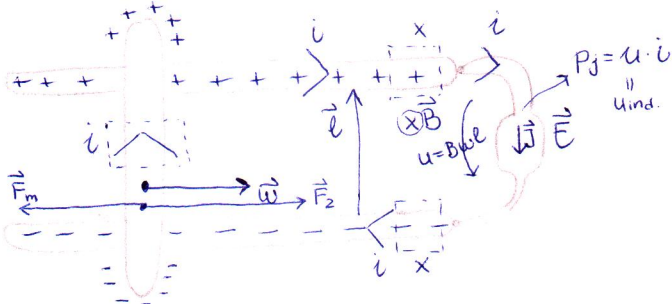 + + + + + + +
i x i
+ + + + + + + + + +
Pj = u · i
॥
uind.
i
l⃗
ⓧB⃗
u=Bwl
J⃗ E⃗
F⃗m w⃗ F⃗2
- - - - - - - - - -
i x
- - - - - -